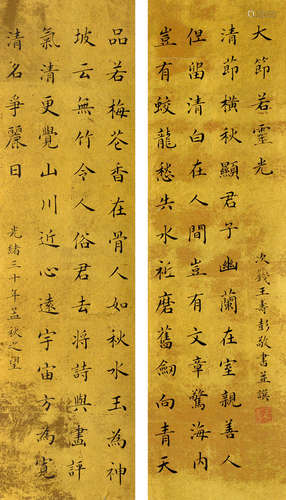 品若梅花香在骨人如秋水玉為神
坡云無竹令人俗君去將詩與畫評
氣清更覺山川近心遠宇宙方為寬
清名爭麗日
光緒三十年孟秋之望
豈有蛟龍愁失水祇磨舊劍向青天
但留清白在人間豈有文章驚海内
清節橫秋顯君子幽蘭在室親善人
大節若靈光
次籛王壽彭敬書並撰